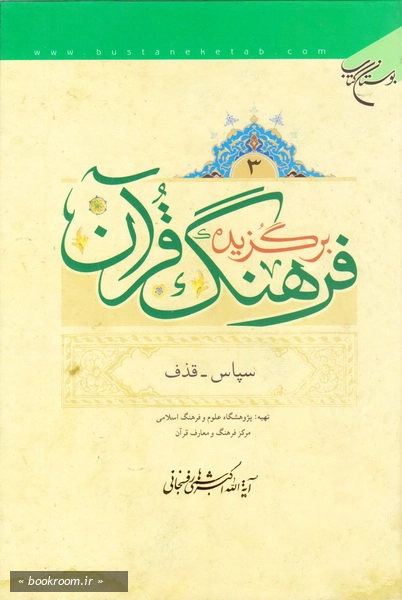 www.bustaneketab.com
بوستان کتاب
۳
برگزیده
فرهنگ قرآن
سپاس - قذف
تهیه: پژوهشگاه علوم و فرهنگ اسلامی
مرکز فرهنگ و معارف قرآن
آیة الله اکبر هاشمی رفسنجانی
« bookroom.ir »